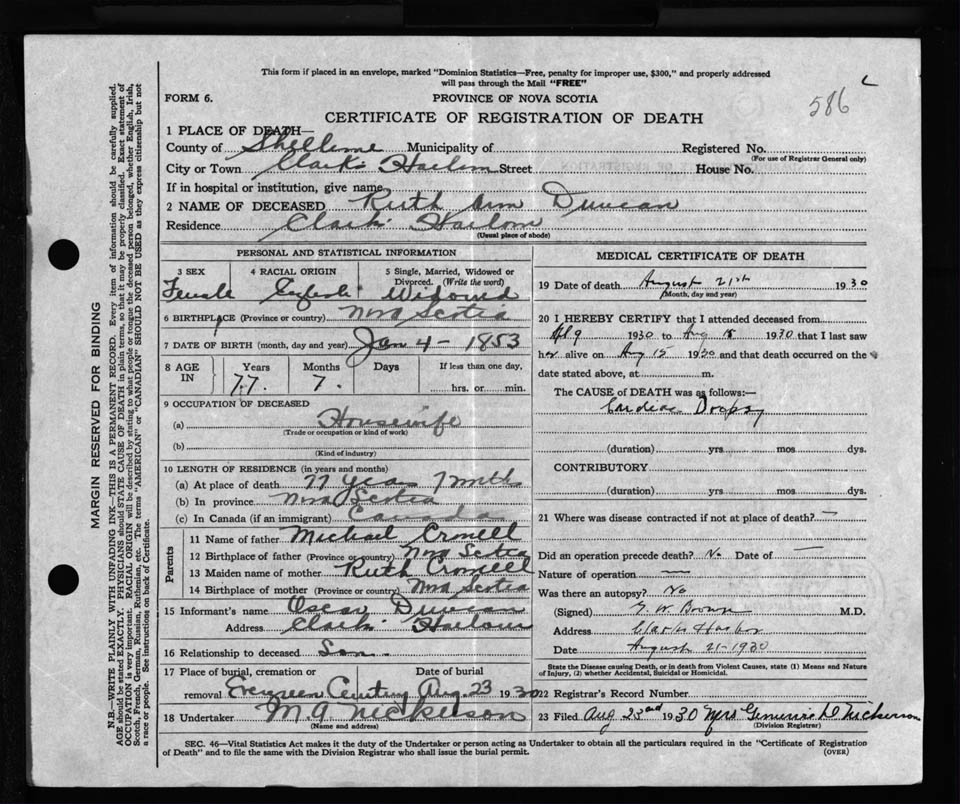 This form if placed in an envelope, marked "Dominion Statistics—Free, penalty for improper use, $300," and properly addressed
will pass through the Mail "FREE"
586
FORM 6.
PROVINCE OF NOVA SCOTIA
CERTIFICATE OF REGISTRATION OF DEATH
1 PLACE OF DEATH—
County of Shelburne Municipality of Registered No.
(For use of Registrar General only)
City or Town Clark's Harbour Street House No.
If in hospital or institution, give name
2 NAME OF DECEASED Ruth Ann Duncan
Residence Clark's Harbour
(Usual place of abode)
PERSONAL AND STATISTICAL INFORMATION
3 SEX 4 RACIAL ORIGIN 5 Single, Married, Widowed or Divorced. (Write the word)
Female English Widowed
6 BIRTHPLACE (Province or country) Nova Scotia
7 DATE OF BIRTH (month, day and year) Jan 4 - 1853
8 AGE IN Years Months Days If less than one day,
77 7 hrs. or min.
9 OCCUPATION OF DECEASED
(a) Housewife
(Trade or occupation or kind of work)
(b)
(Kind of industry)
10 LENGTH OF RESIDENCE (in years and months)
(a) At place of death 77 years 7 mths
(b) In province Nova Scotia
(c) In Canada (if an immigrant) Canada
Parents
11 Name of father Michael Crowell
12 Birthplace of father (Province or country) Nova Scotia
13 Maiden name of mother Ruth Crowell
14 Birthplace of mother (Province or country) Nova Scotia
15 Informant's name Oscar Duncan
Address Clark's Harbour
16 Relationship to deceased Son
17 Place of burial, cremation or Date of burial
removal Evergreen Cemetery Aug. 23 1930
18 Undertaker M A Nickerson
(Name and address)
MEDICAL CERTIFICATE OF DEATH
19 Date of death August 21st 1930
(Month, day and year)
20 I HEREBY CERTIFY that I attended deceased from
9 1930 to Aug 15 1930 that I last saw
her alive on Aug 15 1930 and that death occurred on the
date stated above, at m.
The CAUSE OF DEATH was as follows:—
Cardiac Dropsy
(duration) yrs. mos dys.
CONTRIBUTORY
(duration) yrs mos. dys.
21 Where was disease contracted if not at place of death? —
Did an operation precede death? No Date of —
Nature of operation —
Was there an autopsy? No
(Signed) G. W. Brown M.D.
Address Clark's Harbor
Date August 21-1930
State the Disease causing Death, or in death from Violent Causes, state (1) Means and Nature
of Injury, (2) whether Accidental, Suicidal or Homicidal.
22 Registrar's Record Number
23 Filed Aug 23rd 1930 Mrs D Nickerson
(Division Registrar)
SEC. 46—Vital Statistics Act makes it the duty of the Undertaker or person acting as Undertaker to obtain all the particulars required in the "Certificate of Registration
of Death" and to file the same with the Division Registrar who shall issue the burial permit.
(OVER)
MARGIN RESERVED FOR BINDING
N.B.—WRITE PLAINLY WITH UNFADING INK—THIS IS A PERMANENT RECORD. Every item of information should be carefully supplied.
AGE should be stated EXACTLY. PHYSICIANS should STATE CAUSE OF DEATH in plain terms, so that it may be properly classified. Exact statement of
OCCUPATION is very important. RACIAL ORIGIN will be described by stating to what people or tongue the deceased person belonged, whether English, Irish,
Scotch, French, German, Russian, Ruthenian, etc. The terms "AMERICAN" or "CANADIAN" SHOULD NOT BE USED as they express citizenship but not
a race or people. See instructions on back of Certificate.